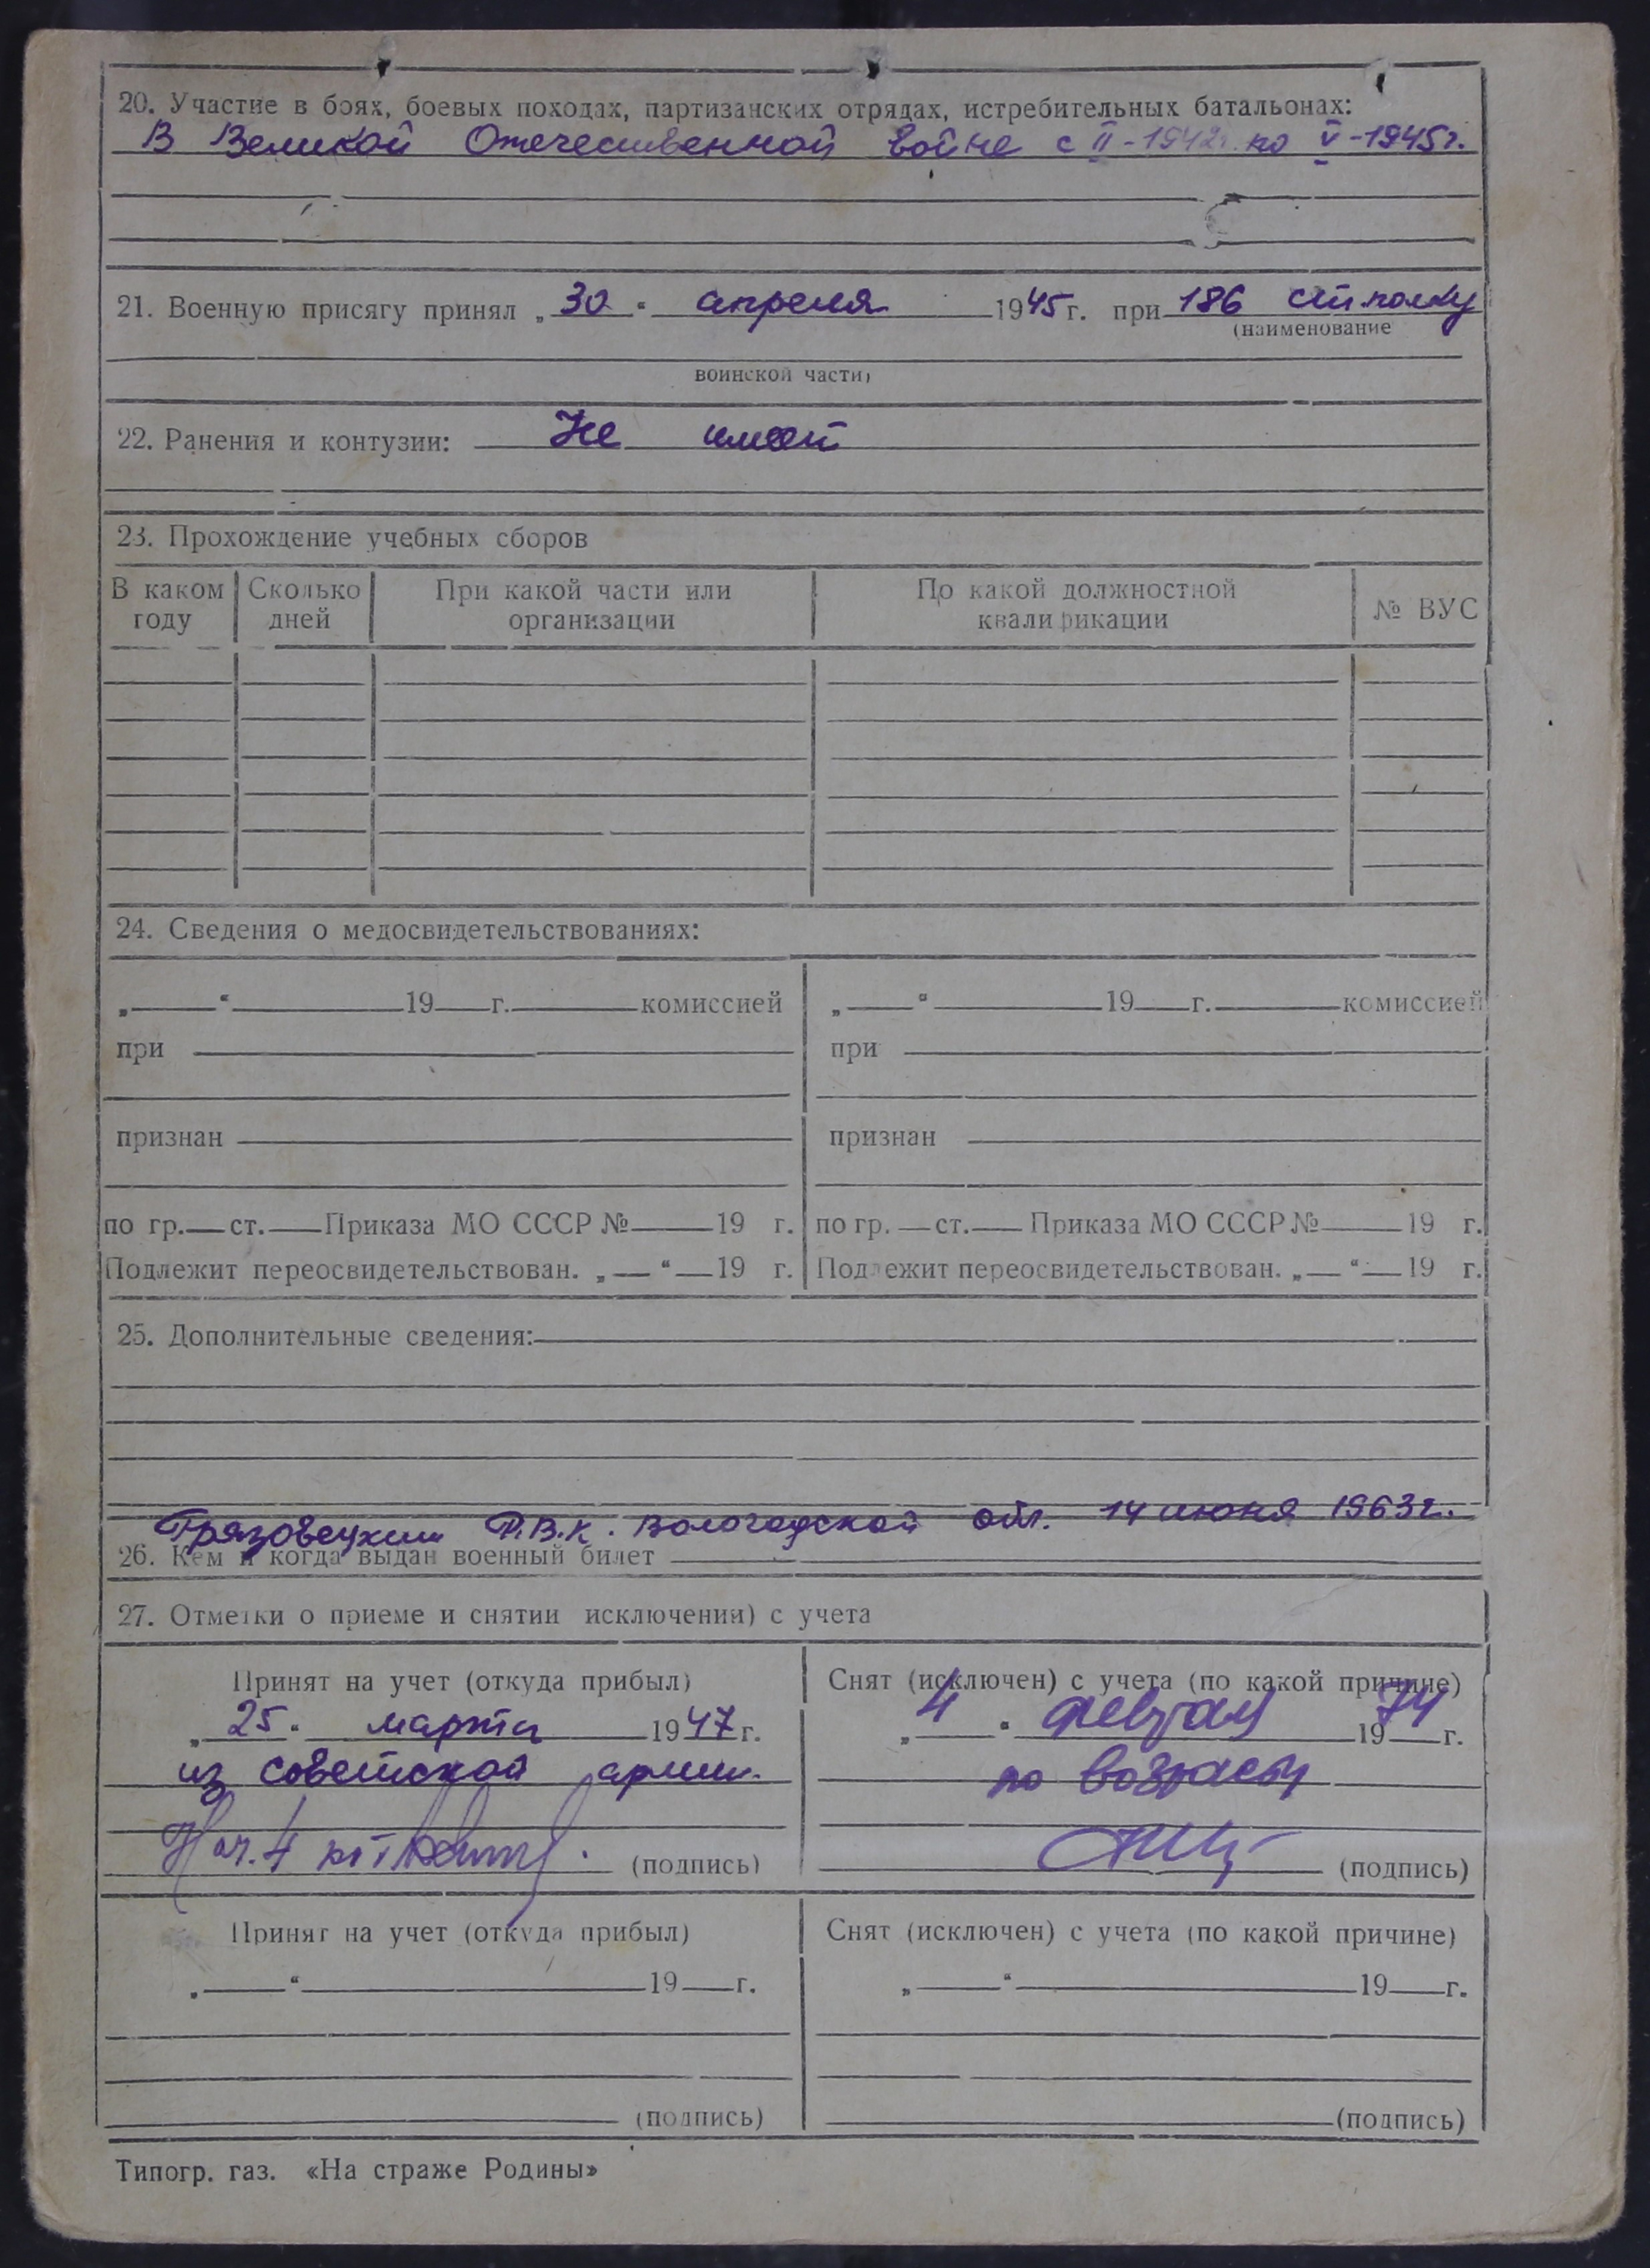 20. Участие в боях, боевых походах, партизанских отрядах, истребительных батальонах:
В Великой Отечественной войне с II-1942г. по V-1945г.
21. Военную присягу принял „30“ апреля 1945г. при 186 сп.полку
(наименование
воинской части)
22. Ранения и контузии: Не имеет
23. Прохождение учебных сборов
В каком году Сколько дней При какой части или организации По какой должностной квалификации № ВУС
24. Сведения о медосвидетельствованиях:
„ “ 19 г. комиссией „ “ 19 г. комиссией
при при
признан признан
по гр. ст. Приказа МО СССР № 19 г. по гр. ст. Приказа МО СССР № 19 г.
Подлежит переосвидетельствован. „ “ 19 г. Подлежит переосвидетельствован. „ “ 19 г.
25. Дополнительные сведения:
Грязовецким Р.В.К. Вологодской обл. 14 июня 1963г.
26. Кем и когда выдан военный билет
27. Отметки о приеме и снятии исключении) с учета
Принят на учет (откуда прибыл) Снят (исключен) с учета (по какой причине)
„25“ марта 1947г. „4“ февраля 1974г.
из советской армии. по возрасту
Нач. 4 (подпись) (подпись)
Принят на учет (откуда прибыл) Снят (исключен) с учета (по какой причине)
„ “ 19 г. „ “ 19 г.
(подпись) (подпись)
Типогр. газ. «На страже Родины»